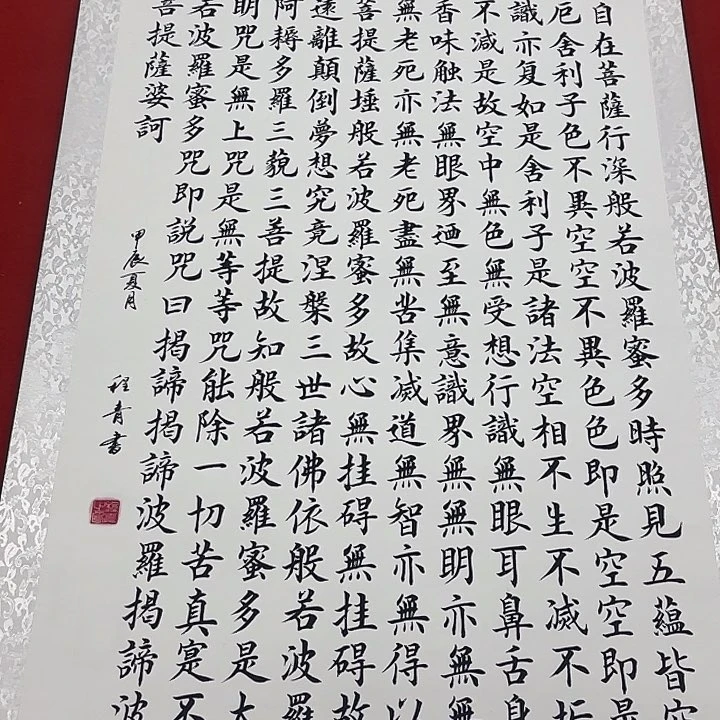 自在菩薩行深般若波羅蜜多時照見五蘊皆空
厄舍利子色不異空空不異色色即是空空即是
識亦复如是舍利子是諸法空相不生不滅不垢
不減是故空中無色無受想行識無眼耳鼻舌身
香味触法無眼界迺至無意識界無無明亦無無
無老死亦無老死盡無苦集滅道無智亦無得以
菩提薩埵般若波羅蜜多故心無挂碍無挂碍故
遠離顛倒夢想究竟涅槃三世諸佛依般若波羅
阿耨多羅三藐三菩提故知般若波羅蜜多是大
明咒是無上咒是無等等咒能除一切苦真寔不
若波羅蜜多咒即說咒曰揭諦揭諦波羅揭諦波
菩提薩婆訶
甲辰夏月
程青書